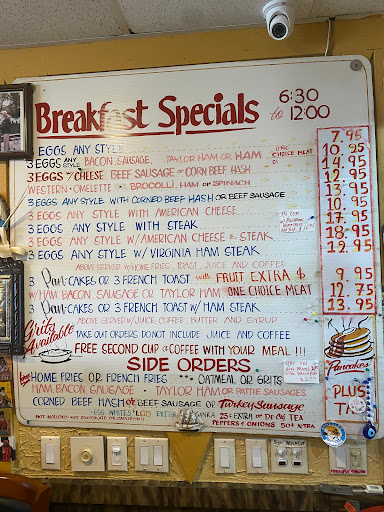 Breakfast Specials 6:30 to 12:00
EGGS ANY STYLE 7.95
3 EGGS ANY STYLE BACON, SAUSAGE, TAYLOR HAM OR HAM ONE CHOICE MEAT 10.95
3 EGGS w/ CHEESE BEEF SAUSAGE OR CORN BEEF HASH 14.95
WESTERN - OMELETTE - BROCOLLI, HAM OR SPINACH 12.95
3 EGGS ANY STYLE WITH CORNED BEEF HASH OR BEEF SAUSAGE 13.95
3 EGGS ANY STYLE WITH AMERICAN CHEESE 10.95
3 EGGS ANY STYLE WITH STEAK 17.95
3 EGGS ANY STYLE W/ AMERICAN CHEESE & STEAK 18.95
3 EGGS ANY STYLE W/ VIRGINIA HAM STEAK 12.95
ABOVE SERVED W/HOME FRIES, TOAST, JUICE AND COFFEE
3 Pan-CAKES OR 3 FRENCH TOAST with FRUIT EXTRA $ 9.95
W/HAM, BACON, SAUSAGE OR TAYLOR HAM ONE CHOICE MEAT 12.95
3 Pan-CAKES OR 3 FRENCH TOAST W/ HAM STEAK 13.95
Grits Available
ABOVE SERVED W/JUICE, COFFEE, BUTTER AND SYRUP
TAKE OUT ORDERS DO NOT INCLUDE JUICE AND COFFEE
FREE SECOND CUP OF COFFEE WITH YOUR MEAL !!!
Pancakes
SIDE ORDERS
HOME FRIES OR FRENCH FRIES OATMEAL OR GRITS
HAM BACON SAUSAGE - TAYLOR HAM OR PATTIE SAUSAGES
CORNED BEEF HASH OR BEEF SAUSAGE OR Turkey Sausage
PLUS
EGG WHITES
NOT INCLUDED HOT CHOCOLATE OR CAPUCCINO
PEPPERS & ONIONS 50¢ XTRA